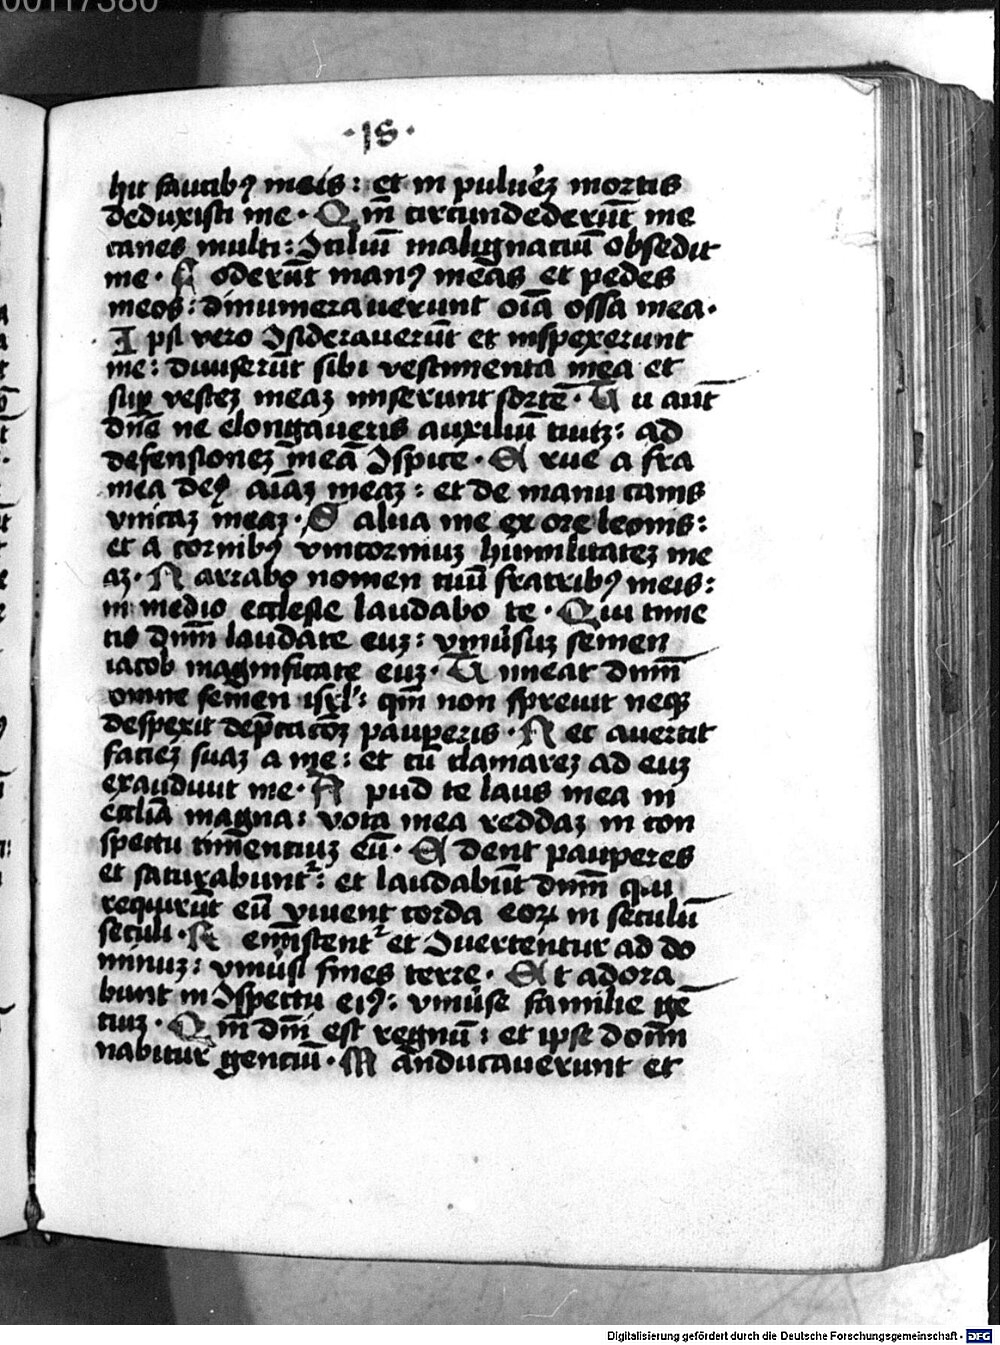 00117380
·18·
hit faucibꝰ meis: et in puluerꝫ mortis
deduxisti me· Qm̄ circundederūt me
canes multi: Ɔciliuꝫ malignātiū obsedit
me· Foderūt manꝰ meas et pedes
meos: dinumerauerunt oīa ossa mea·
Ipsi vero Ɔsiderauerūt et inspexerunt
me: diuiserūt sibi vestimenta mea et
suꝑ vesteꝫ meaꝫ miserunt sortē· Tu aūt
dn̄e ne elongaueris auxiliū tuuꝫ: ad
defensioneꝫ meā Ɔspice· Erue a fra
mea deꝰ aīaꝫ meaꝫ: et de manu canis
vnicaꝫ meaꝫ· Salua me ex ore leonis:
et a cornibꝰ vnicorniuꝫ humilitateꝫ me
aꝫ· Narrabo nomen tuū fratribꝰ meis:
in medio ecclesie laudabo te· Qui time
tis dn̄m laudate euꝫ: vniūsuꝫ semen
iacob magnificate euꝫ· Timeat dn̄m
omne semen isrl': qm̄ non spreuit neqꝫ
despexit dep̄cacōꝫ pauꝑis· Nec auertit
facieꝫ suaꝫ a me: et cū clamareꝫ ad euꝫ
exaudiuit me· Apud te laus mea in
ecclīa magna: vota mea reddaꝫ in con
spectu timēciuꝫ eū· Edent pauperes
et saturabunt᷑: et laudabūt dn̄m qui
requirūt eū viuent corda eoꝝ in seculū
seculi· Reminiscent᷑ et Ɔuertentur ad do
minuꝫ: vniūsi fines terre· Et adora
bunt in Ɔspectu eiꝰ: vniūse familie gē
ciuꝫ· Qm̄ dn̄i est regnū: et ipse domī
nabitur genciū· Manducauerunt et
Digitalisierung gefördert durch die Deutsche Forschungsgemeinschaft · DFG